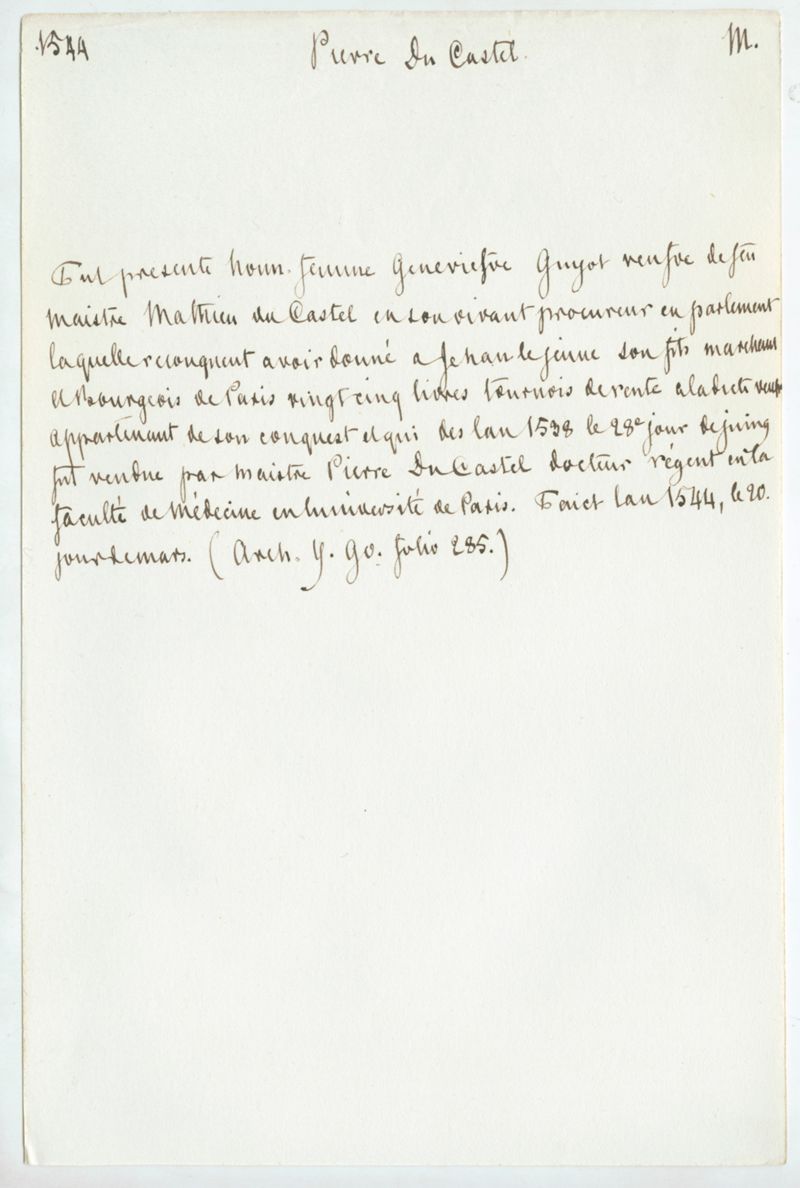 1544 Pierre Du Castel. M.
Fut presente honn. femme Geneviefve Guyot veufve de feu
maistre Mathieu du Castel en son vivant procureur en parlement
laquelle recongnent avoir donné a Jehan le jeune son fils marchant
et Bourgeois de Paris vingt cinq livres tournois de rente a la dicte veufve
appartenant de son conquest et qui des lan 1538 le 28e jour de juing
fut vendue par maistre Pierre Du Castel docteur régent en la
faculté de Médecine en luniversité de Paris. Faict lan 1544, le 20.
jour de mars. (Arch. Y. 90. folio 285.)